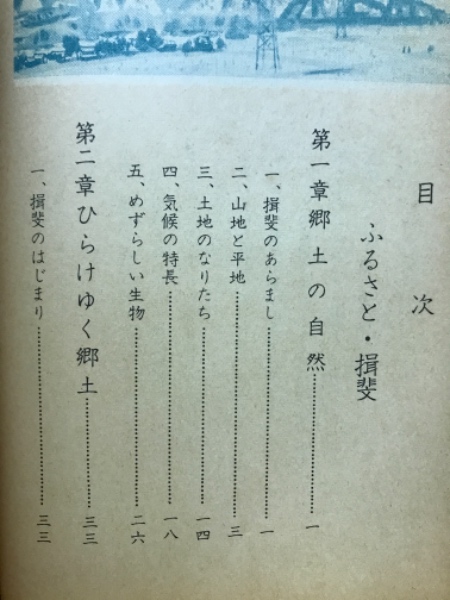 目次
ふるさと・揖斐
第一章郷土の自然……………………一
一、揖斐のあらまし……………………一
二、山地と平地……………………三
三、土地のなりたち……………………一四
四、気候の特長……………………一八
五、めずらしい生物……………………二六
第二章ひらけゆく郷土……………………三三
一、揖斐のはじまり……………………三三